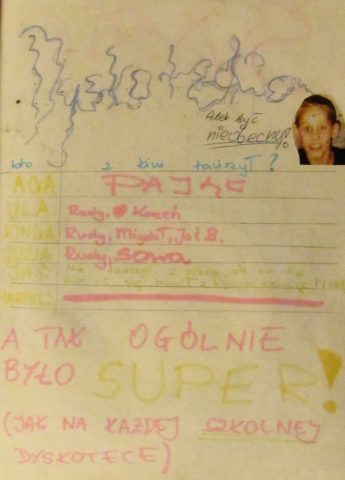 Dyskoteka
Abel być
nieobecny!
kto z kim tańczył?
AGA PAJĄK
ULA Rudy, Korzeń
KINGA Rudy, Migdał, Jaś B.
ZUZIA Rudy, SOWA
JAŚ Nie tańczył z nikim, ale za to
MARIUSZ
A TAK OGÓLNIE
BYŁO SUPER!
(JAK NA KAŻDEJ SZKOLNEJ
DYSKOTECE)